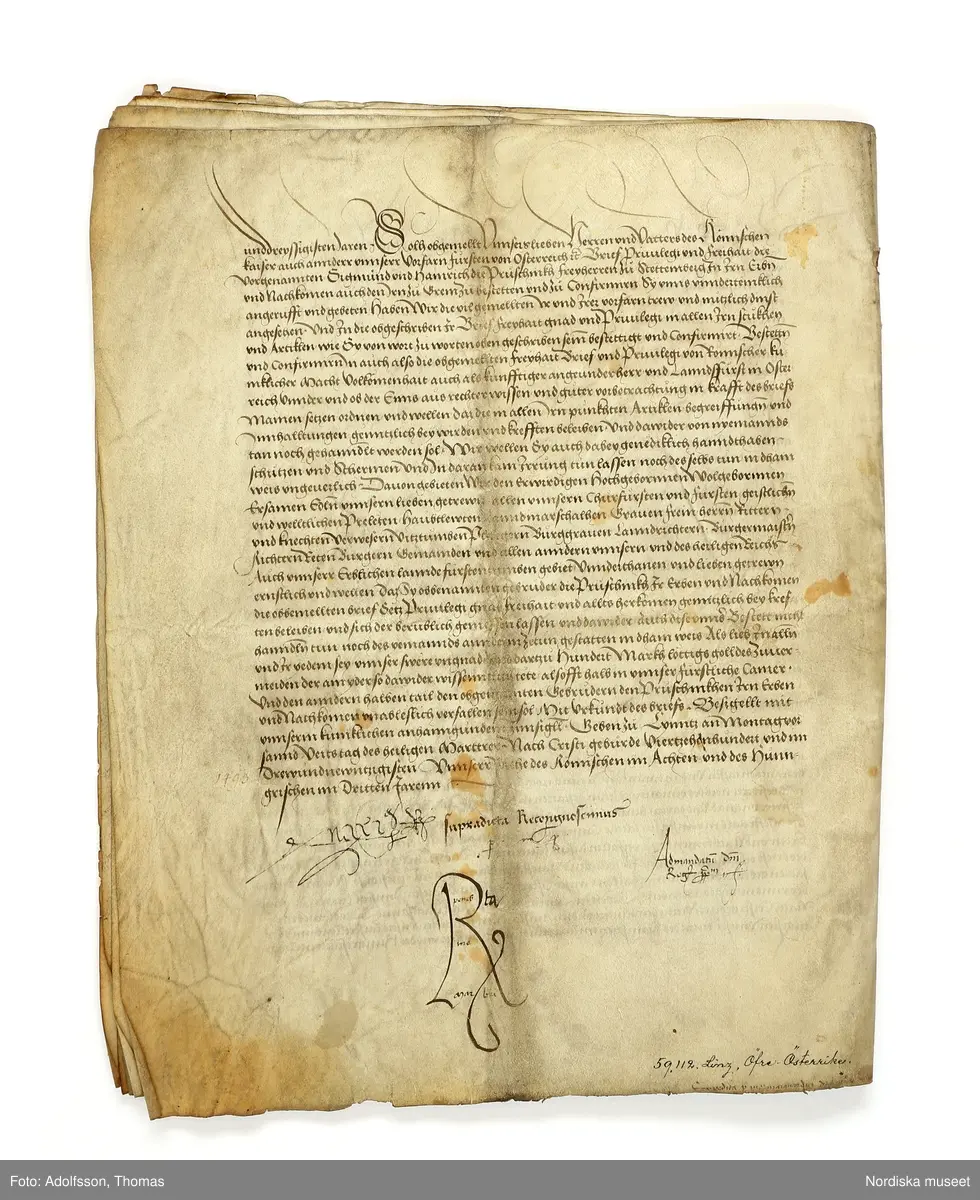 unddreyssigisten Jaren. Solh obgemellt Unnsers lieben Herren und Vatters des Römischen
kaiser auch annderr unnserr Vorfarn fürsten von Osterreich etc Brief Privilegi und freihait die
Vorgenannten Sigmund und Hainrich die Prüschinkh freyherren zu Stettemberg Jn Jrn Erbn
und Nachkomen auch den Jrn zu Brem zu bestetten und zu Confirmirn Sy unns unndertenikhlich
angerufft und gebeten Haben Wir die vil gemellten Jr und Jrer vorfarn trew und nutzlich dinst
angesehen. Und Jn die obgeschriben Jr Brief freyhait gnad und Privilegi in allen Jrn stukhen
und Artiklen wie Sy von wort zu worten oben geschriben sein bestettigt und Confirmirt. Bestettn
und Confirmirn auch also die obgemelten freyhait Brief und Privilegi von Romischer ku
niklicher Macht Volkomenhait auch als kunfftiger angeunder herr und Lanndsfürst in Oster
reich Unnder und ob der Enns aus rechter wissen und guter vorbetrachtung in krafft des briefs
Mainen setzen ordnen und wellen daz die in allen Jrn punkhten Artiklen begreiffungen und
Jnnhalltungen genntzlich bey wirden und krefften beleiben. Und dawider von nyemannds
tan noch gehanndlt werden sol. Wir wellen Sy auch dabey genediklich hanndthaben
schützen und Schermen Und Jn daran kain Jrrung tun lassen noch des selbs tun in dhain
weis ungeuerlich. Dauon gebieten Wir den Erwirdigen Hochgebornnen Wolgebornnen
Ersamen Edln unnsern lieben getrewn allen unnsern Churfürsten und fursten geistlichn
und welltlichen Preleten. Haubtlewten Lanndmarschalhen Grauen freın herrn Rittern
und knechten Verwesern Vitztumben Phlegern Burggrauen Lanndrichtern. Burgermaistern
Richtern Reten Burgern Gemainden und allen anndern unnsern und des heiligen Reichs
Auch unnserr Erblichen lannde fürstentumben gebiet Unnderthanen und lieben getrewn
ernstlich und wellen Daz Sy obbenannten gebruder die Prüschinkh Jr Erben und Nachkomen
die obbemellten brief Setz Privilegi gnad freihait und allts herkomen genntzlich bey kref-
ten beleiben und sich der berublich gemessen lassen und dawider auch diser unnser Bestett nicht
hanndln tun noch des yemannds anndern zetun gestatten in dhain weis Als lieb Jn alln
und Jr yedem sey unnser swere ungnad und dartzu Hundert Markh lottigs golldes zuuer-
meiden der ain yder so dawider wissentlich tete. als offt halb in unnser fürstliche Camer.
Und den anndern halben tail den obgenannten Gebrüdern den Prüschinkhen Jrn Erben
und Nachkomen unableßlich verfallen sein sol. Mit Urkundt des briefs. Besigellt mit
unnserm kuniklichen anhanngunden Jnnsigl. Geben zu Lynntz an Montag vor
sannd Veits tag des heiligen Martrer. Nach Cristi gebürde Viertzehenhundert und im
Drewundnewntzigisten Unnserr Reiche des Römischen im Achten und des Hunn-
grischen im Dritten Jarenn
1493
supradicta Recognoscimus
Ad mandatū dni
Reg
59.112. Linz, Öfre-Österrike.
Foto: Adolfsson, Thomas
Nordiska museet